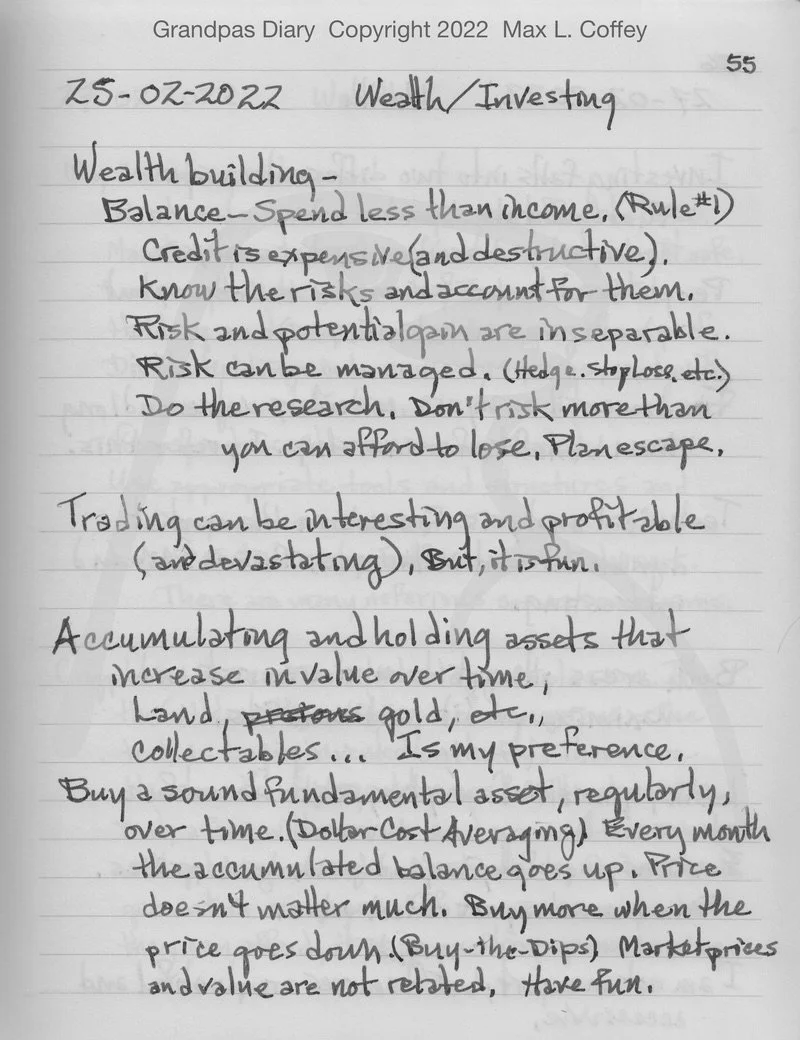 Grandpas Diary Copyright 2022 Max L. Coffey
55
25-02-2022 Wealth/Investing
Wealth building-
Balance-Spend less than income. (Rule #1)
Credit is expensive (and destructive).
Know the risks and account for them.
Risk and potential gain are inseparable.
Risk can be managed. (Hedge. stop Loss, etc.)
Do the research. Don't risk more than
you can afford to lose. Plan escape.
Trading can be interesting and profitable
(and devastating), But, it is fun.
Accumulating and holding assets that
increase in value over time,
Land, gold, etc.,
collectables... Is my preference.
Buy a sound fundamental asset, regularly,
over time. (Dollar-Cost Averaging) Every month
the accumulated balance goes up. Price
doesn't matter much. Buy more when the
price goes down. (Buy-the-Dips) Market prices
and value are not related. Have fun.